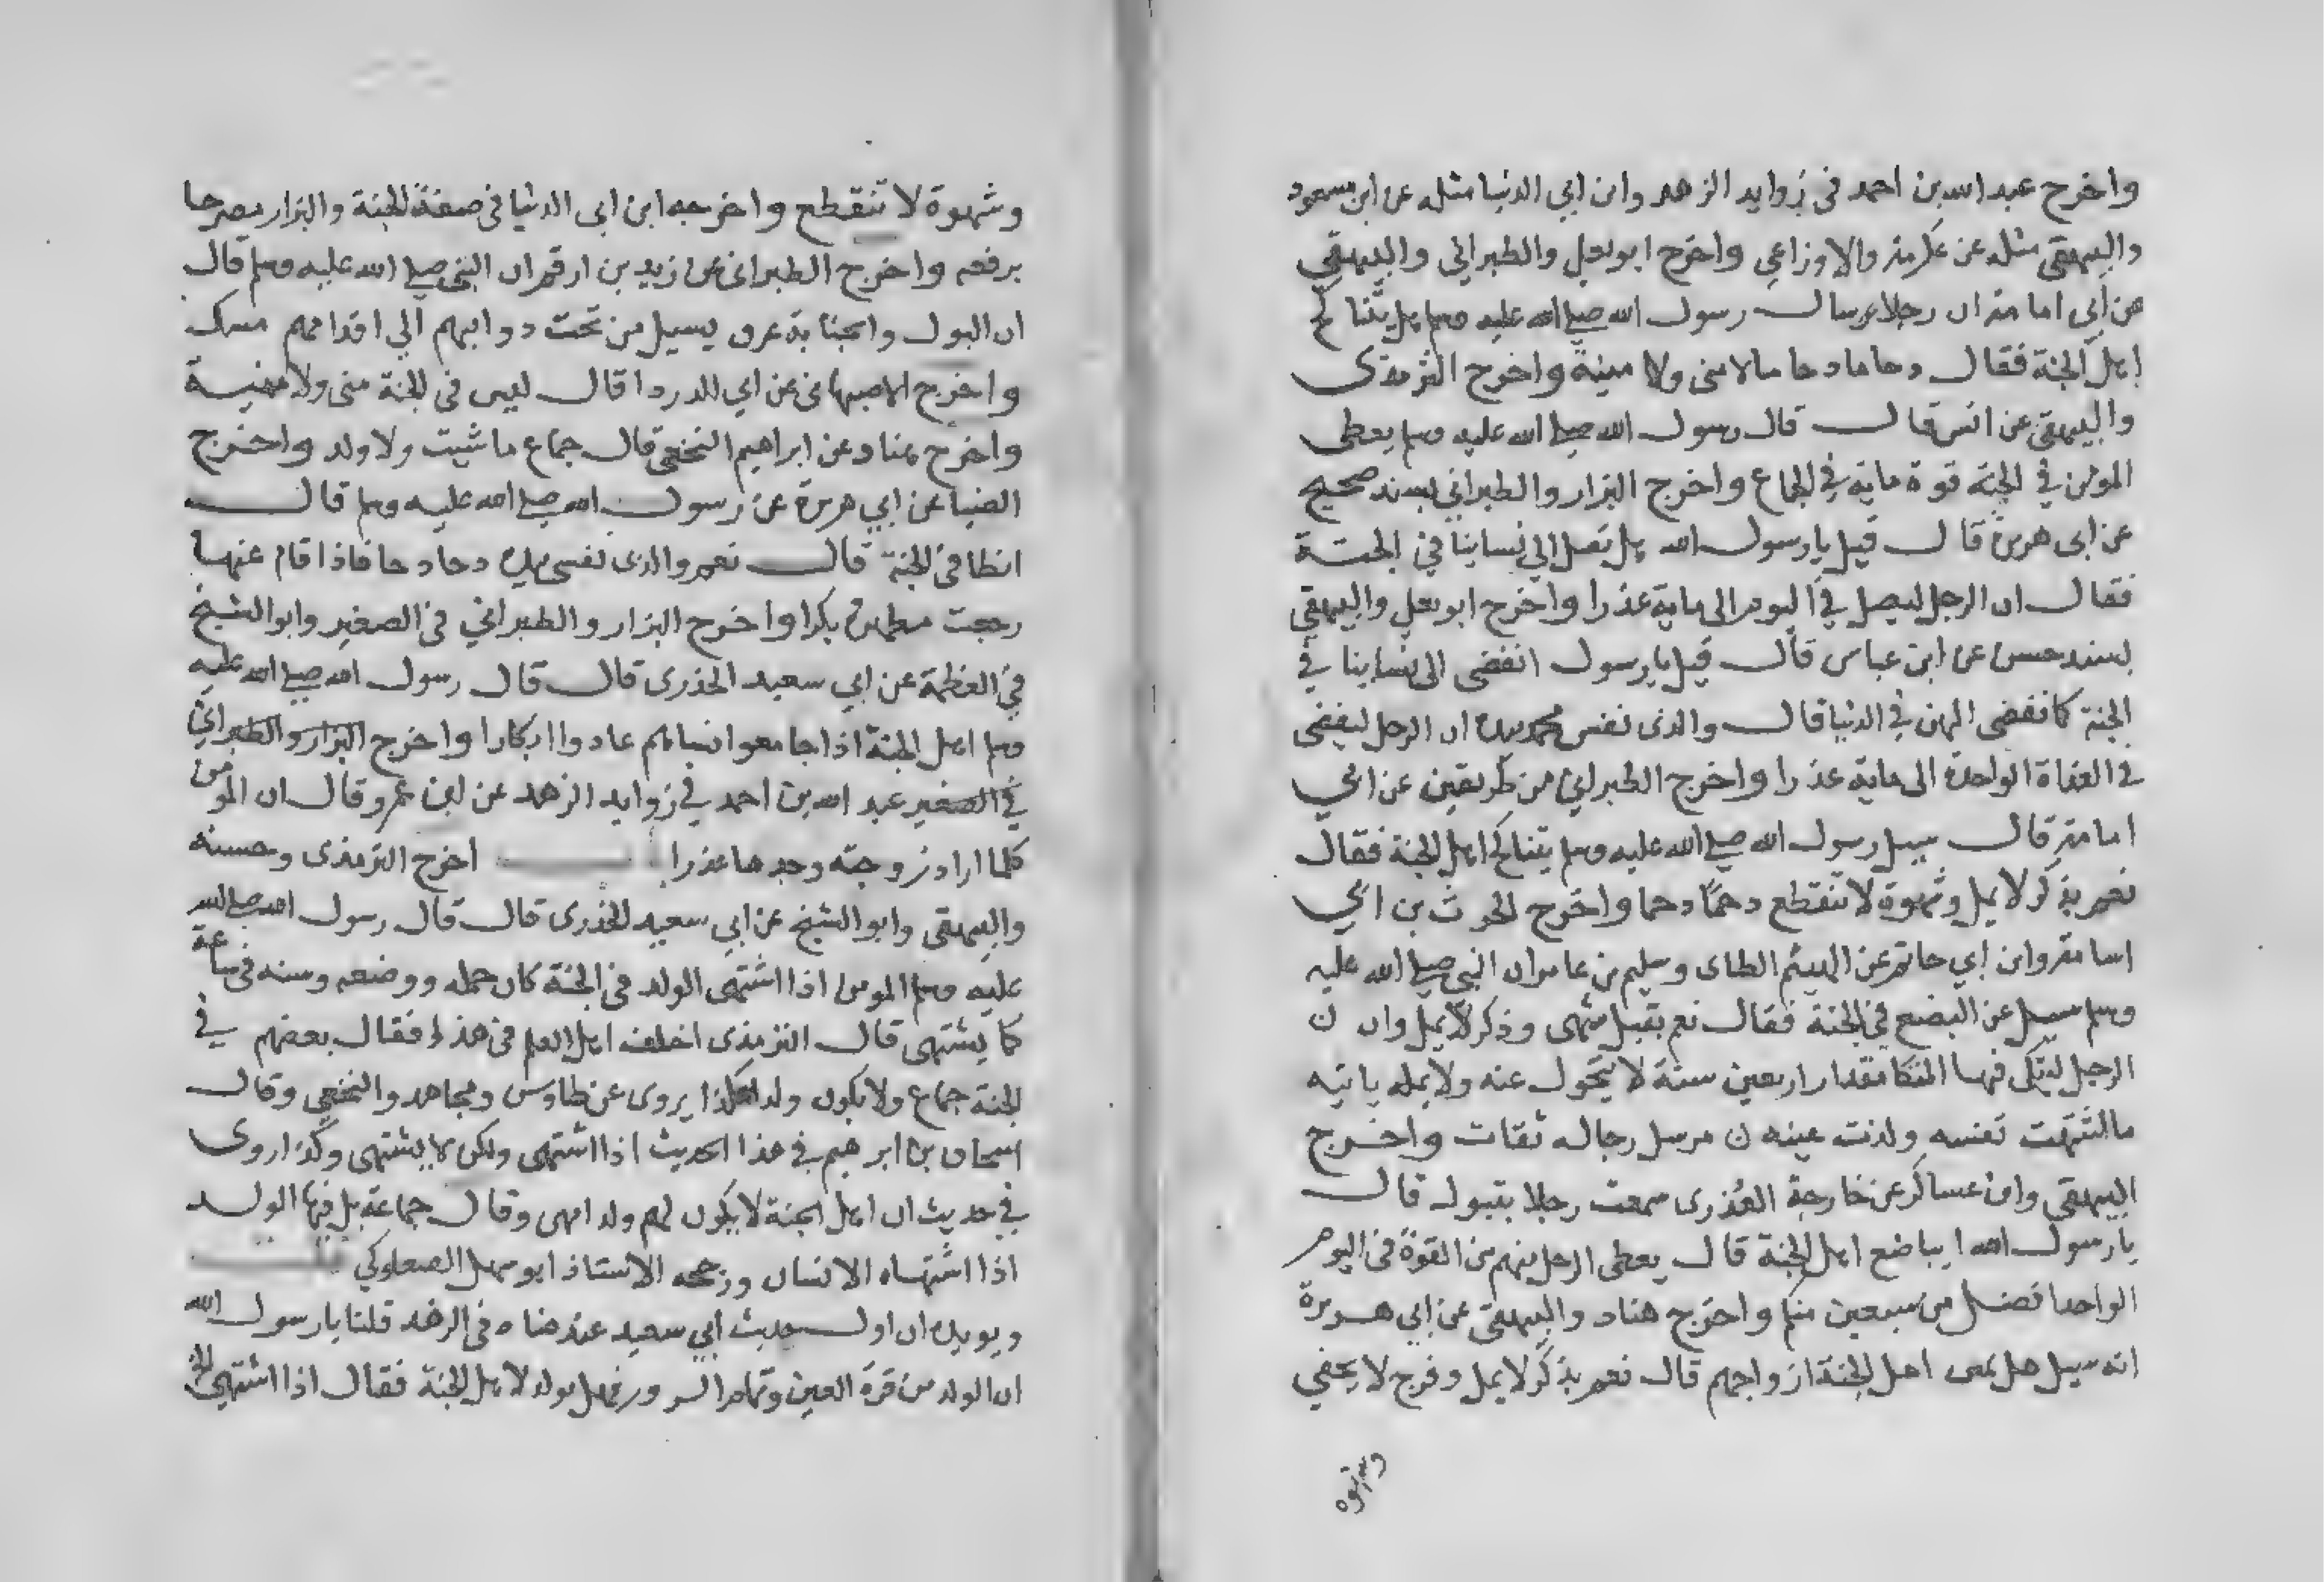 واخرج عبد الله بن احمد في زوايد الزهد وابن ابي الدنيا مثله عن ابن مسعود
والبيهقي مثله عن عكرمة والاوزاعي واخرج ابو يعلى والطبراني والبيهقي
عن ابي امامة ان رجلا سال رسول الله صلى الله عليه وسلم هل يتناكح
اهل الجنة فقال دحاما دحاما لا منى ولا منية واخرج الترمذى
والبيهقي عن انس قال قال رسول الله صلى الله عليه وسلم يعطى
المومن في الجنة قوة ماية في الجماع واخرج البزار والطبراني بسند صحيح
عن ابى هريرة قال قيل يا رسول الله هل نصل الى نساينا في الجنة
فقال ان الرجل ليصل في اليوم الى ماية عذرا واخرج ابو يعلى والبيهقي
بسند حسن عن ابن عباس قال قيل يا رسول انفضى الى نساينا في
الجنة كما نفضى الهن في الدنيا قال والذى نفس محمد بيده ان الرجل ليفضى
في الغداة الواحدة الى ماية عذرا واخرج الطبراني من طريقين عن ابي
امامة قال سيل رسول الله صلى الله عليه وسلم يتناكح اهل الجنة فقال
نعم بذكر لا يمل وشهوة لا تنقطع دحما دحما واخرج الحرث بن ابي
اسامة وابن ابي حاتم عن الهيثم الطاى وسليم بن عامر ان النبي صلى الله عليه
وسلم سيل عن البضع في الجنة فقال نعم بقبل شهى وذكر لا يمل وان ن
الرجل ليتكى فيها المتكا مقدار اربعين سنة لا يتحول عنه ولا يمله ياتيه
ما اشتهت نفسه ولذت عينه ن مرسل رجاله ثقات واخرج
البيهقي وابن عساكر عن خارجة العذرى سمعت رجلا بتبوك قال
يا رسول الله ايباضع اهل الجنة قال يعطى الرجل منهم من القوة في اليوم
الواحد افضل من سبعين منكم واخرج هناد والبيهقي عن ابي هريرة
انه سيل هل يمس اهل الجنة ازواجهم قال نعم بذكر لا يمل وفرج لا يحفي
وشهوة
وشهوة لا تنقطع واخرجه ابن ابى الدنيا في صفة الجنة والبزار مصرحا
برفعه واخرج الطبرانى عن زيد بن ارقم ان النبي صلى الله عليه وسلم قال
ان البول والجنابة عرق يسيل من تحت ذوابهم الي اقدامهم مسك
واخرج الاصبهانى عن ابي الدردا قال ليس في الجنة منى ولا منية
واخرج هناد عن ابراهيم النخعى قال جماع ما شيت ولا ولد واخرج
الضيا عن ابي هريرة عن رسول الله صلى الله عليه وسلم قال
انطا في الجنة قال نعم والذى نفسى بيده دحا دحا فاذا قام عنها
رجعت مطهرة بكرا واخرج البزار والطبراني في الصغير وابو الشيخ
في العظمة عن ابي سعيد الخذرى قال قال رسول الله صلى الله عليه
وسلم اهل الجنة اذا جامعوا نساهم عادوا ابكارا واخرج البزار والطبراني
في الصغير عبد الله بن احمد في زوايد الزهد عن ابن عمرو قال ان المومن
كلما اراد زوجته وجدها عذرا اخرج الترمذى وحسنه
والبيهقى وابو الشيخ عن ابي سعيد الخذرى قال قال رسول الله صلى الله
عليه وسلم المومن اذا اشتهى الولد في الجنة كان حمله ووضعه وسنه في ساعة
كما يشتهى قال الترمذى اختلف اهل العلم في هذا فقال بعضهم في
الجنة جماع ولا يكون ولد هكذا يروى عن طاوس ومجاهد والنخعى وقال
اسحاق بن ابرهيم في هذا الحديث اذا اشتهى ولكن لا يشتهى وكذا روى
في حديث ان اهل الجنة لا يكون لهم ولد انهى وقال جماعة بل فيها الولد
اذا اشتهاه الانسان ورجحه الاستاذ ابو سهل الصعلوكي
ويويده ان اول حديث ابي سعيد عند هناد في الزهد قلنا يا رسول الله
ان الولد من قرة العين وتمام السرور فهل يولد لاهل الجنة فقال اذا اشتهى الخ